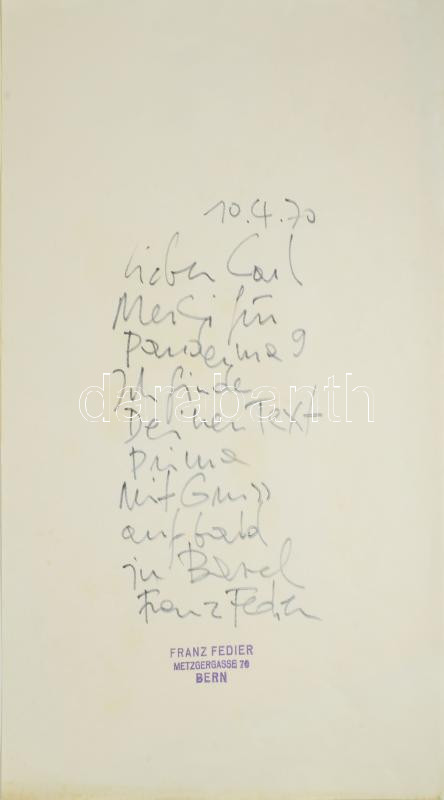 10.4.70
Lieber Carl
Merci für
Panderma 9
Ich finde
Deinen Text
prima
Mit Gruss
auf bald
in Basel
Franz Fedier
darabanth
FRANZ FEDIER
METZGERGASSE 70
BERN